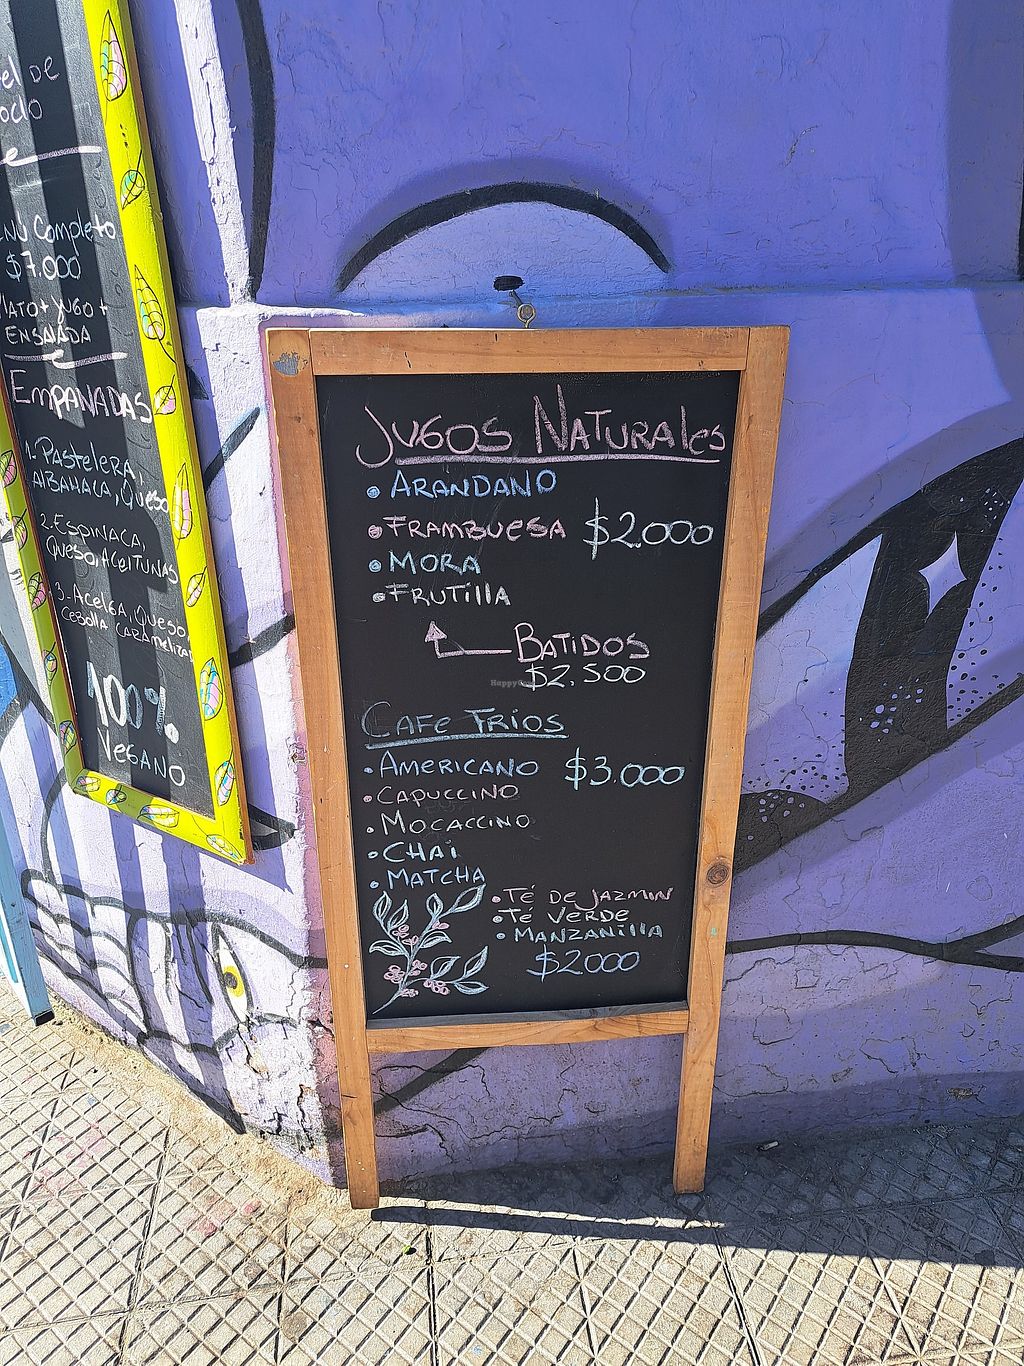 el de
oclo
enú Completo
$7.000
lato + Jugo +
ENSALADA
EMPANADAS
1.-Pastelera,
ALBAHACA, QUESO
2.-ESPINACA,
QUESO, ACEITUNAS
3.-Acelga, Queso,
Cebolla Carameliza
100%
Vegano
Jugos Naturales
• ARANDANO
• FRAMBUESA $2.000
• MORA
• FRUTIllA
BATIDOS
$2.500
HappyCow
CAFE FRIOS
• AMERICANO $3.000
• CAPUCCINO
• MOCACCINO
• CHAI
• MATCHA
• TÉ DE JAZMIN
• TÉ VERDE
• MANZANIllA
$2000